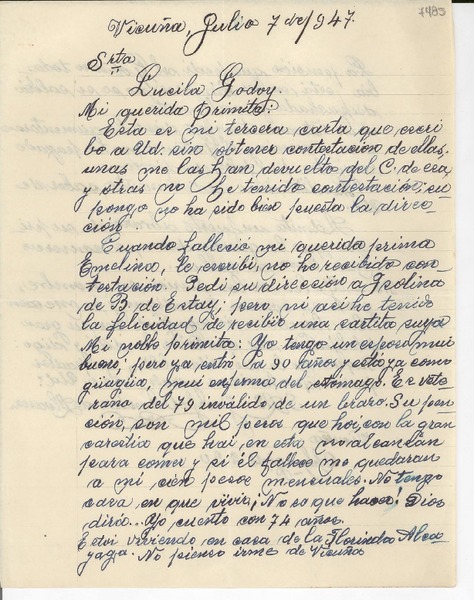 7485
Vicuña, Julio 7 de/947.
Srta
Lucila Godoy
Mi querida Primita:
Esta es mi tercera carta que escri
bo a Ud. sin obtener contestación de ellas,
unas me las han devuelto del C. de esa
y otras no he tenido contestación; su
pongo no ha sido bien puesta la direc-
ción.
Cuando falleció mi querida prima
Emelina, le escribí, no he recibido con
testación. Pedí su dirección a Isolina
de B. de Estay; pero ni asi he tenido
la felicidad de recibir una cartita suya
Mi noble primita: Yo tengo un esposo mui
bueno; pero ya entró a 90 años y está ya como
guagua, mui enfermo del estómago. Es vete
rano del 79 inválido de un brazo. Su pen
ción, son mil pesos que hoi, con la gran
carestia que hai en esta no alcanzan
para comer y si él fallece me quedaran
a mi cien pesos mensuales. No tengo
casa en que vivir; ¡No se que hacer! Dios
dirá... Yo cuento con 74 años.
Estoi viviendo en casa de la Florinda Alca
yaga. No pienso irme de Vicuña